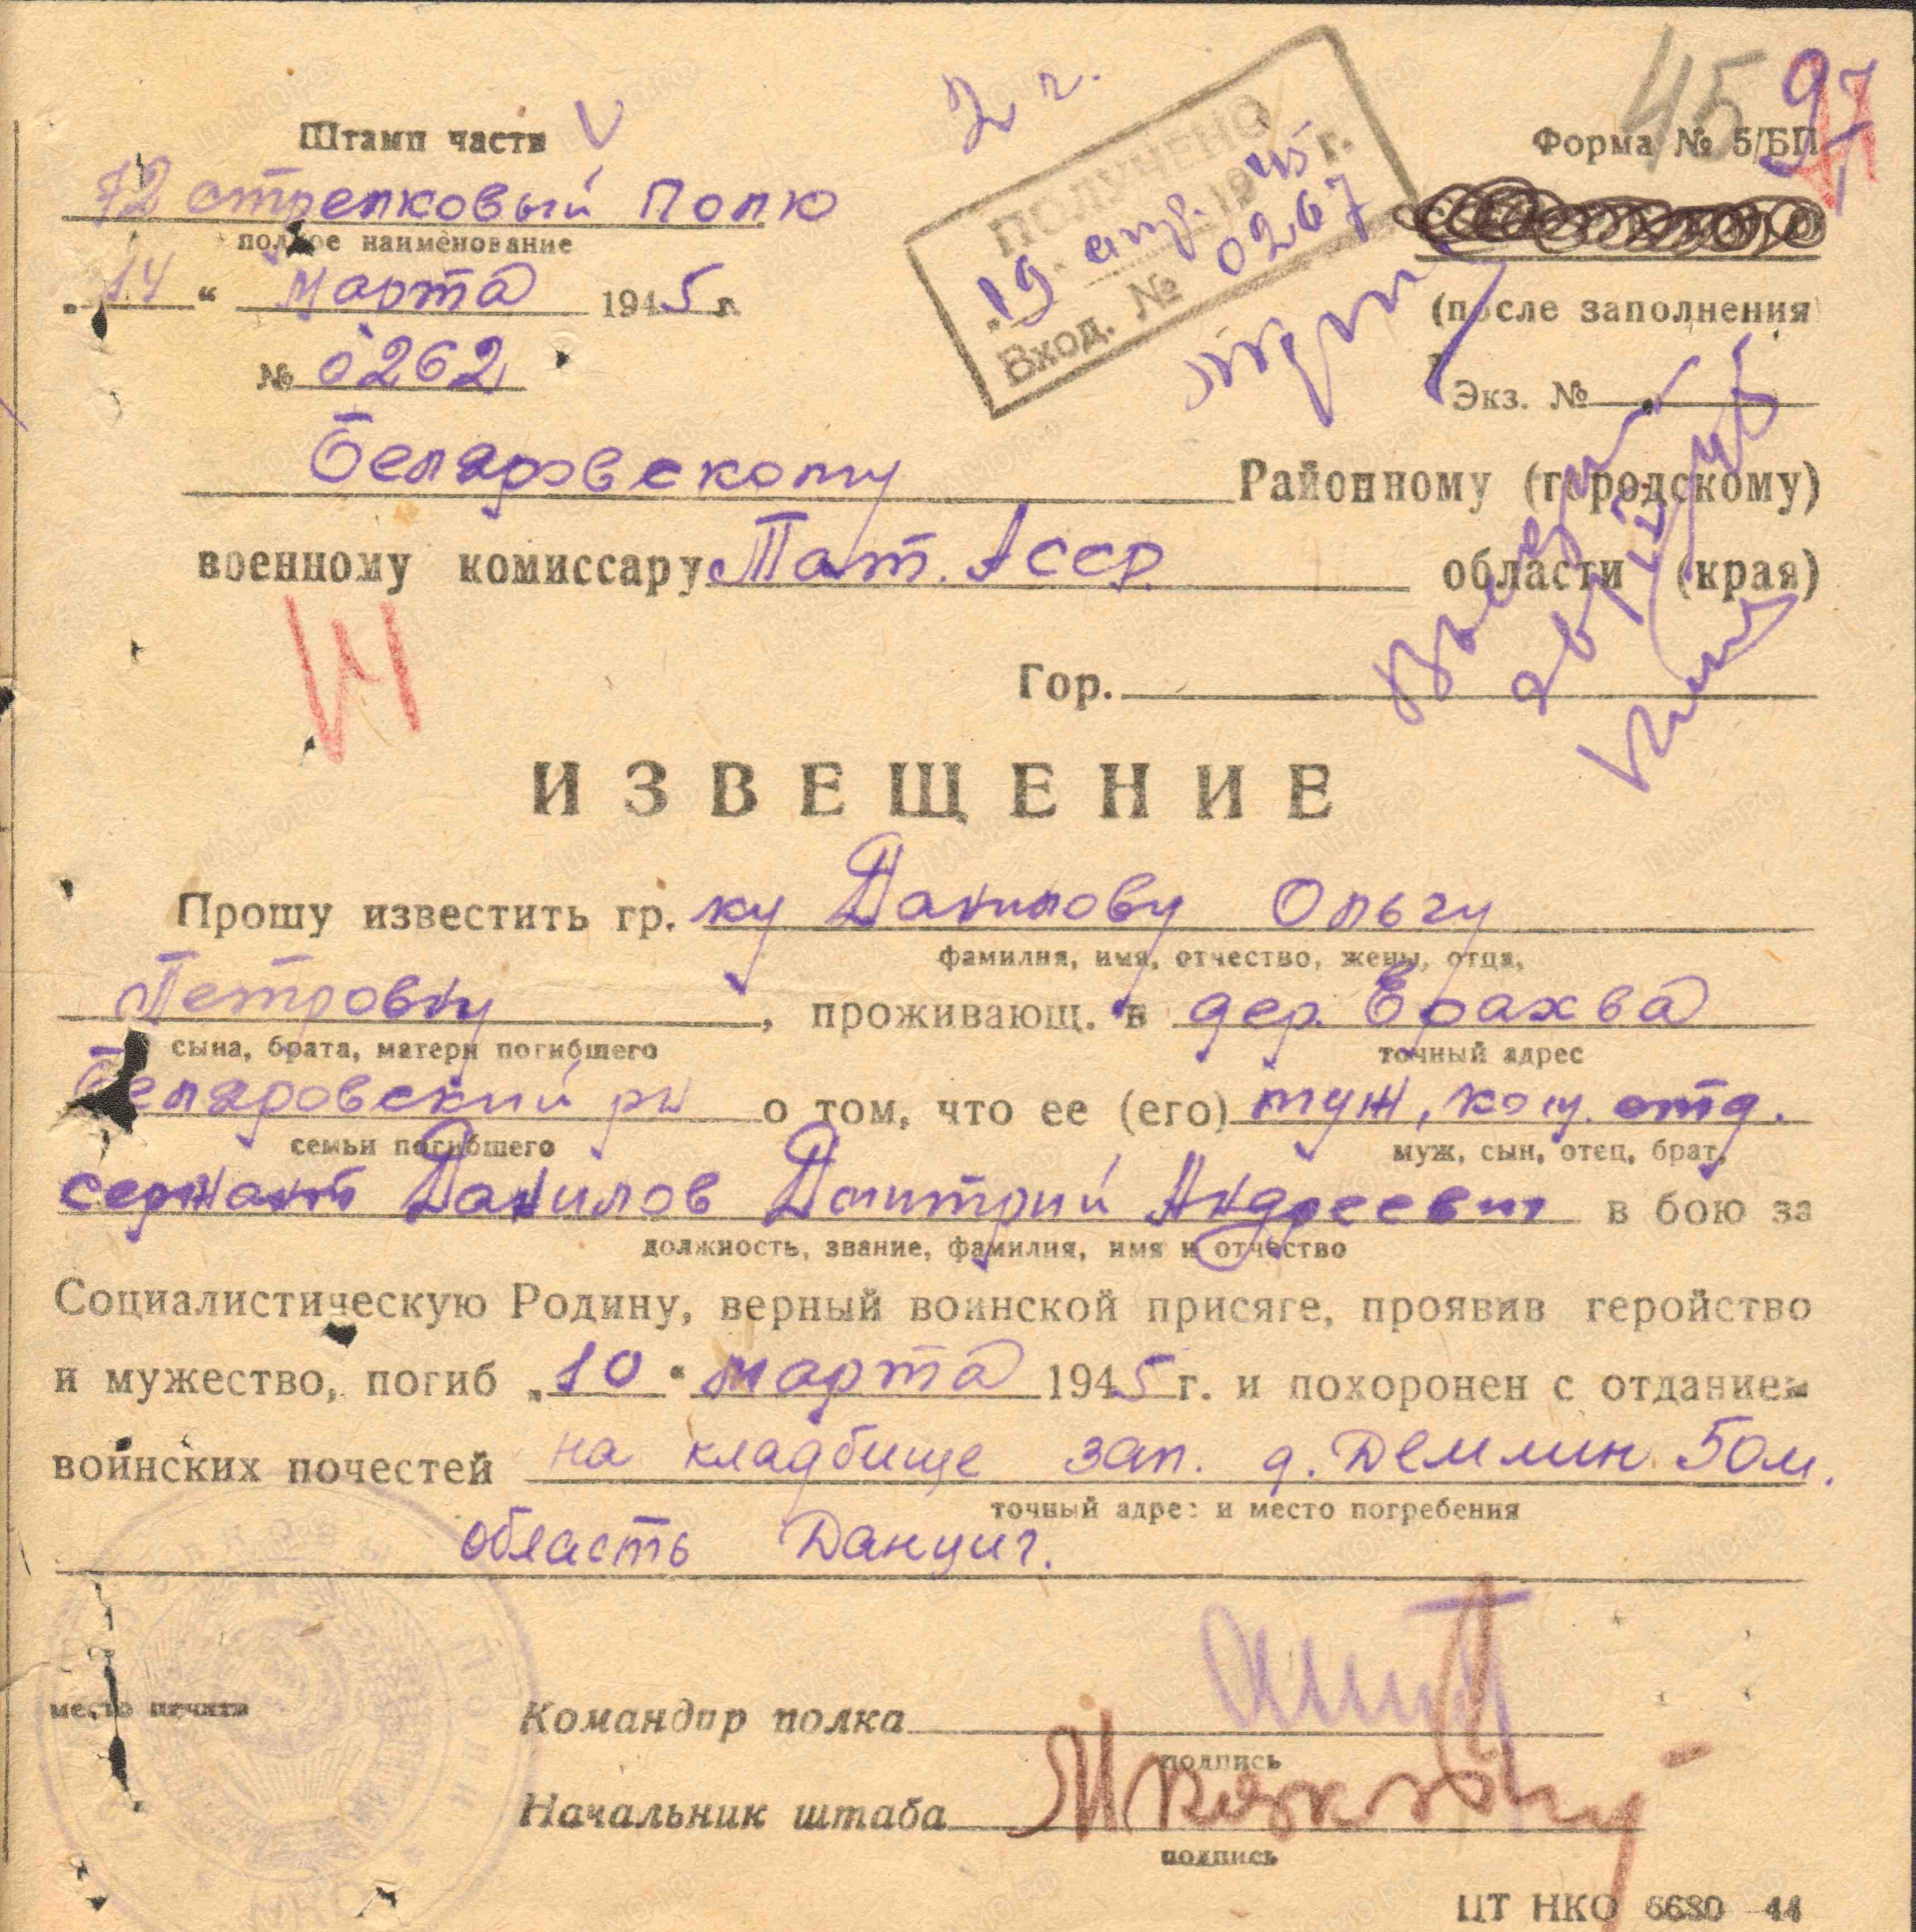 2 г.
45
97
Штамп части
Форма № 5/БП
72 стрелковый полк
полное наименование
„14“ марта 1945 г.
№ 0262
ПОЛУЧЕНО
„19 апр. 1945 г.
Вход. № 0267
(после заполнения)
Экз. №
Беляровскому Районному (городскому)
военному комиссару Тат. АССР области (края)
Гор.
ИЗВЕЩЕНИЕ
Прошу известить гр. ку Данилову Ольгу
фамилия, имя, отчество, жены, отца,
Петровну, проживающ. в дер. Ерахва
сына, брата, матери погибшего
точный адрес
Беляровский рн о том, что ее (его) муж, ком. отд.
семьи погибшего
муж, сын, отец, брат,
сержант Данилов Дмитрий Андреевич в бою за
должность, звание, фамилия, имя и отчество
Социалистическую Родину, верный воинской присяге, проявив геройство
и мужество, погиб „10“ марта 1945 г. и похоронен с отданием
воинских почестей на кладбище зап. д. Деммин 50 м.
точный адрес и место погребения
область Данциг.
место печати
Командир полка
подпись
Начальник штаба
подпись
ЦТ НКО 6680 44